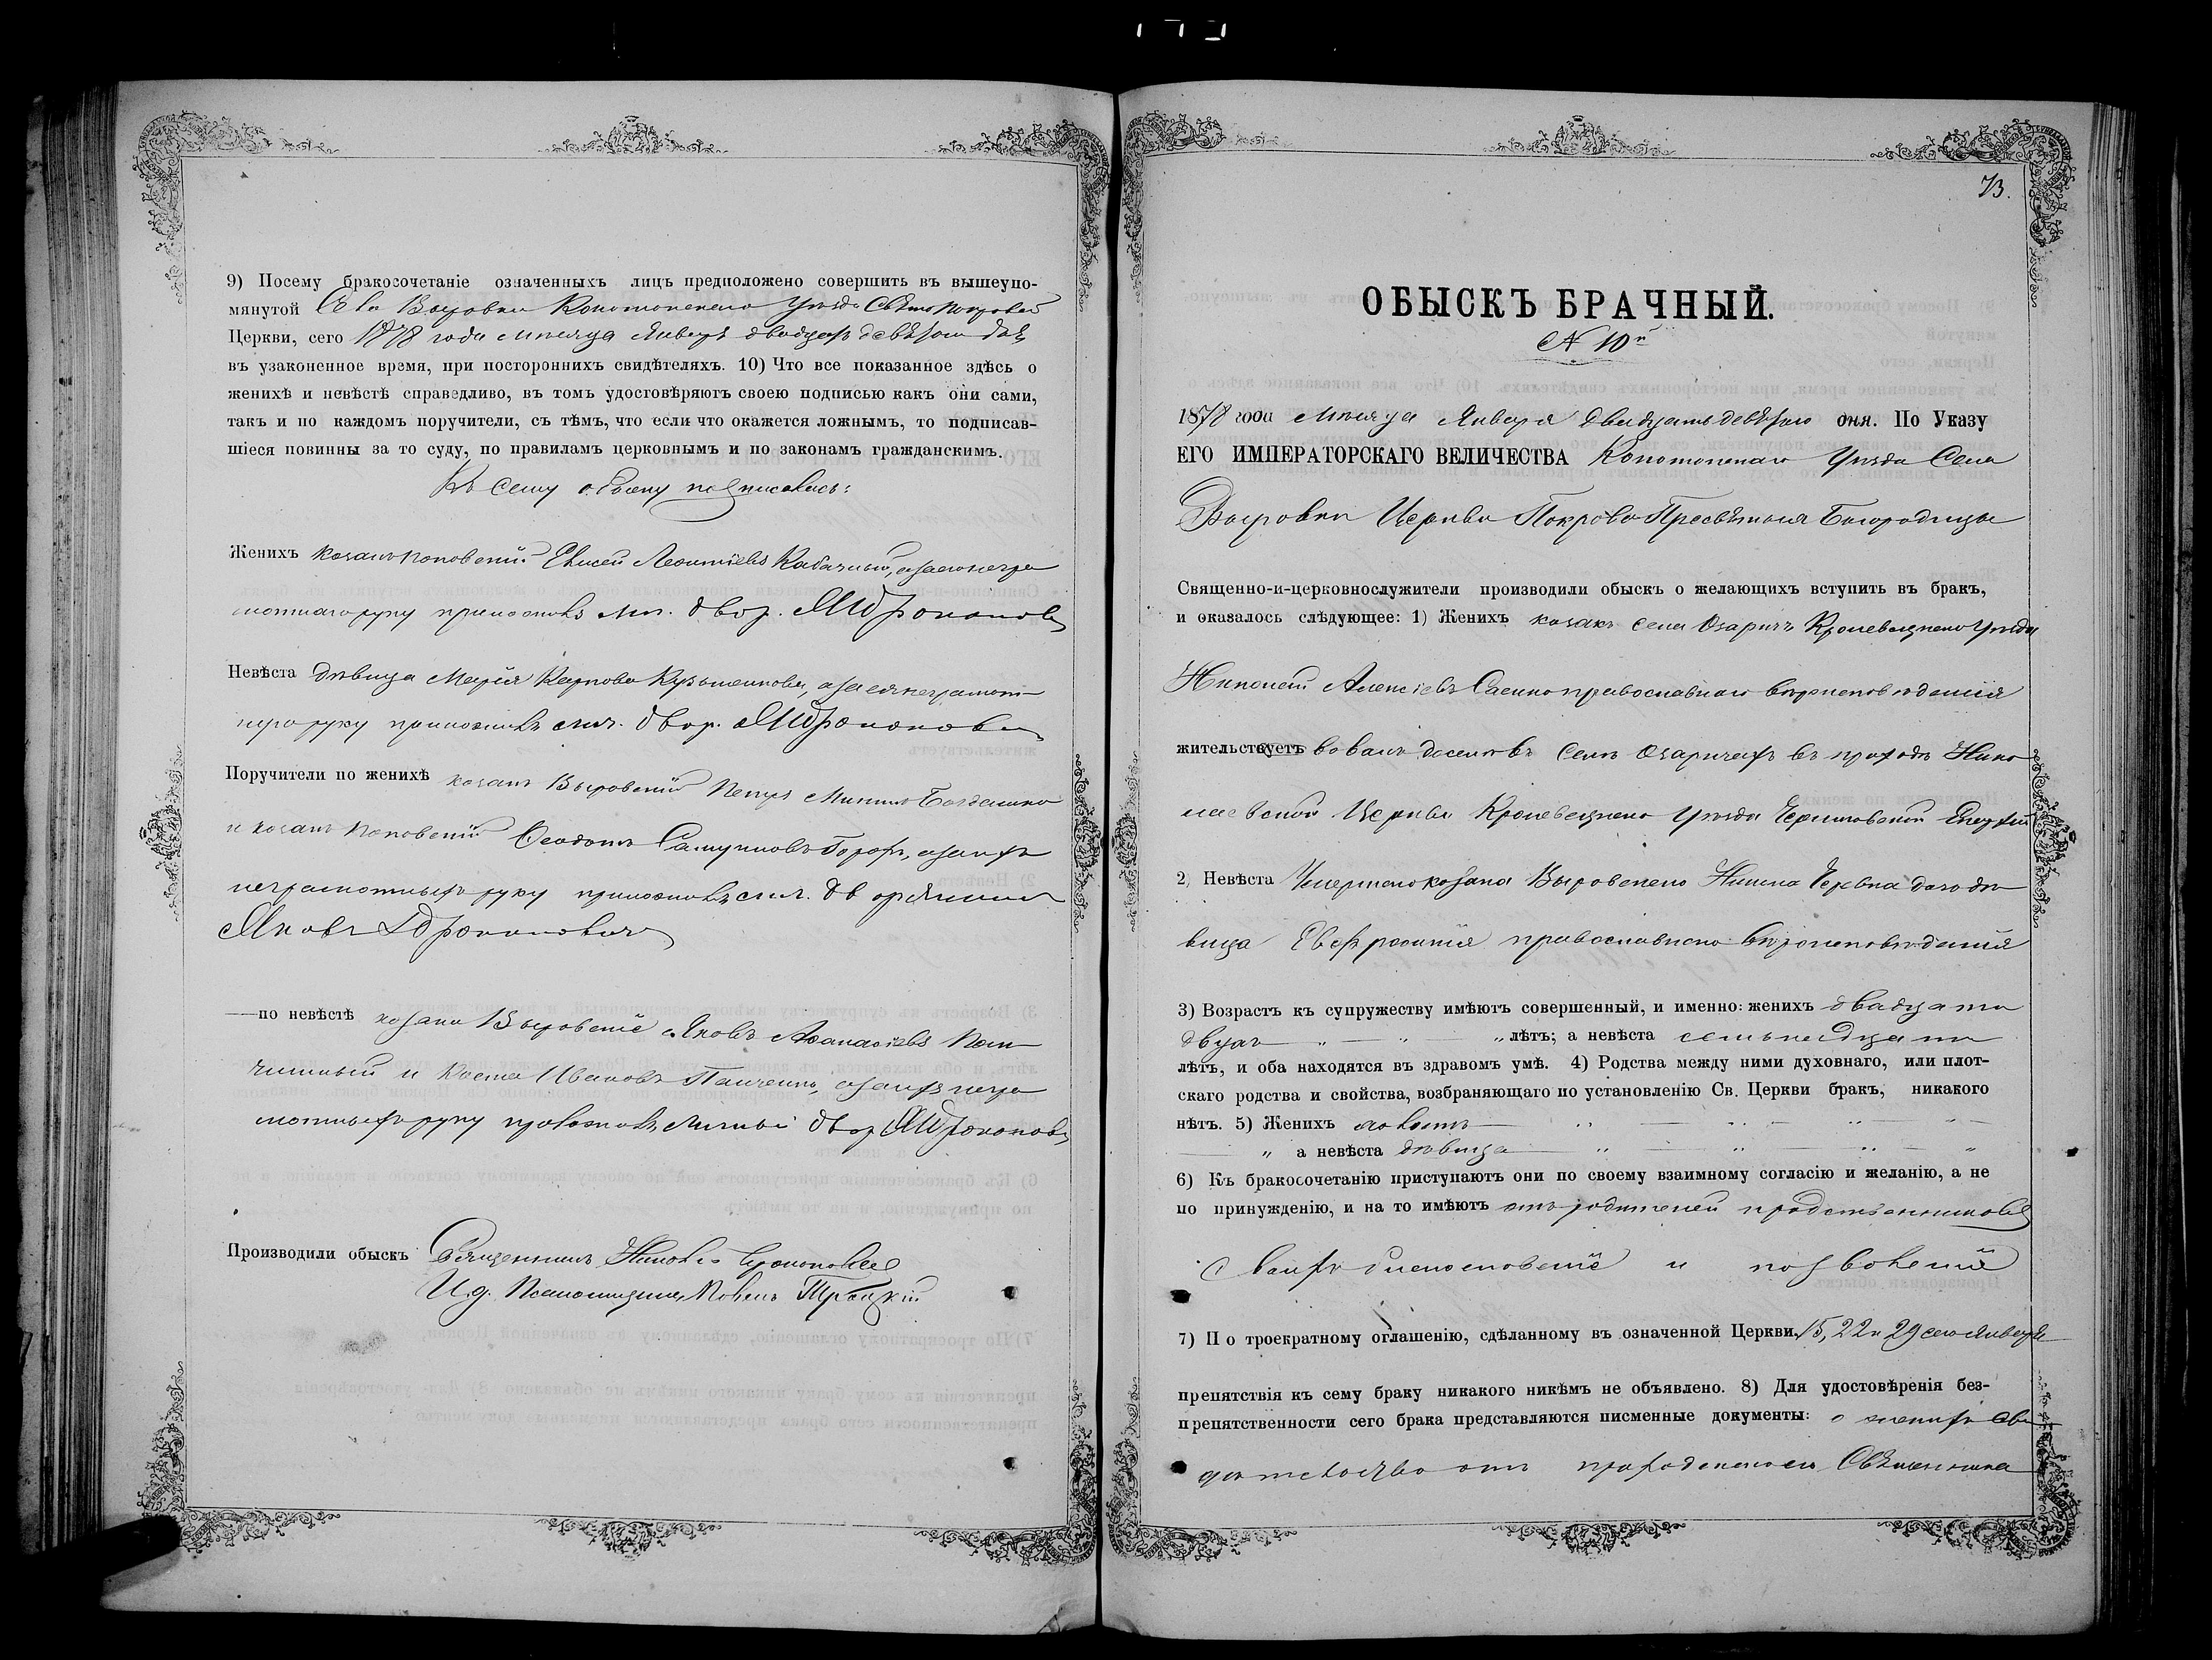 9) Посему бракосочетаніе означенныхъ лицъ предположено совершить въ вышеупо-
мянутой Села Выровки Конотопскаго Уезда Свято Покровской
Церкви, сего 1878 года месяца Января двадцать девятого дня
въ узаконенное время, при постороннихъ свидѣтеляхъ. 10) Что все показанное здѣсь о
женихѣ и невѣстѣ справедливо, въ томъ удостовѣряютъ своею подписью какъ они сами,
такъ и по каждомъ поручители, съ тѣмъ, что если что окажется ложнымъ, то подписав-
шіеся повинны за то суду, по правиламъ церковнымъ и по законамъ гражданскимъ.
Къ сему обыску подписались:
Женихъ козакъ поповскій Елисей Леонтіевъ Кабачный, а за его негра
мотнаго руку приложилъ двор.
Невѣста дѣвица Марія Карпова а за ея неграмот
ную руку приложилъ двор.
Поручители по женихѣ козакъ Выровскій Петръ Никит. Богдашко
и козакъ поповскій Феодотъ Самуиловъ Горохъ, а за ихъ
неграмотныхъ руку приложилъ дворянинъ
Яковъ
—по невѣстѣ козаки Выровскіе Яковъ Афанасіевъ
и Косма Ивановъ Панченко, а за ихъ негра
мотныхъ руку приложилъ двор
Производили обыскъ Священникъ
И. д. Псаломщика Павелъ Троцкій
73.
ОБЫСКЪ БРАЧНЫЙ.
N 10й
1878 года месяца Января двадцать девятого дня. По Указу
ЕГО ИМПЕРАТОРСКАГО ВЕЛИЧЕСТВА Конотопскаго Уезда Села
Выровки Церкви Покрова Пресвятыя Богородицы
Священно-и-церковнослужители производили обыскъ о желающихъ вступить въ бракъ,
и оказалось слѣдующее: 1) Женихъ козакъ села Озаричъ Кролевецкаго Уезда
Николай Алексіевъ Саенко православнаго вероисповеданія
жительствуетъ вовалъ доселе въ селе Озаричахъ въ приходе Нико
лаевской Церкви Кролевецкаго Уезда Черниговской Епархіи
2) Невѣста Умершаго козака Выровскаго дочь де
вица Евфросинія православнаго вероисповеданія
3) Возрастъ къ супружеству имѣютъ совершенный, и именно: женихъ двадцати
двухъ — „ — „ — „ лѣтъ; а невѣста семьнадцати
лѣтъ, и оба находятся въ здравомъ умѣ. 4) Родства между ними духовнаго, или плот-
скаго родства и свойства, возбраняющаго по установленію Св. Церкви бракъ, никакого
нѣтъ. 5) Женихъ холостъ
„ а невѣста девица
6) Къ бракосочетанію приступаютъ они по своему взаимному согласію и желанію, а не
по принужденію, и на то имѣютъ отъ родителей и родственниковъ
своихъ благословеніе и позволеніе
7) По троекратному оглашенію, сдѣланному въ означенной Церкви 15, 22 и 29 сего Января
препятствія къ сему браку никакого никѣмъ не объявлено. 8) Для удостовѣренія без-
препятственности сего брака представляются писменные документы: о женихе сви
детельство отъ приходскаго Священника